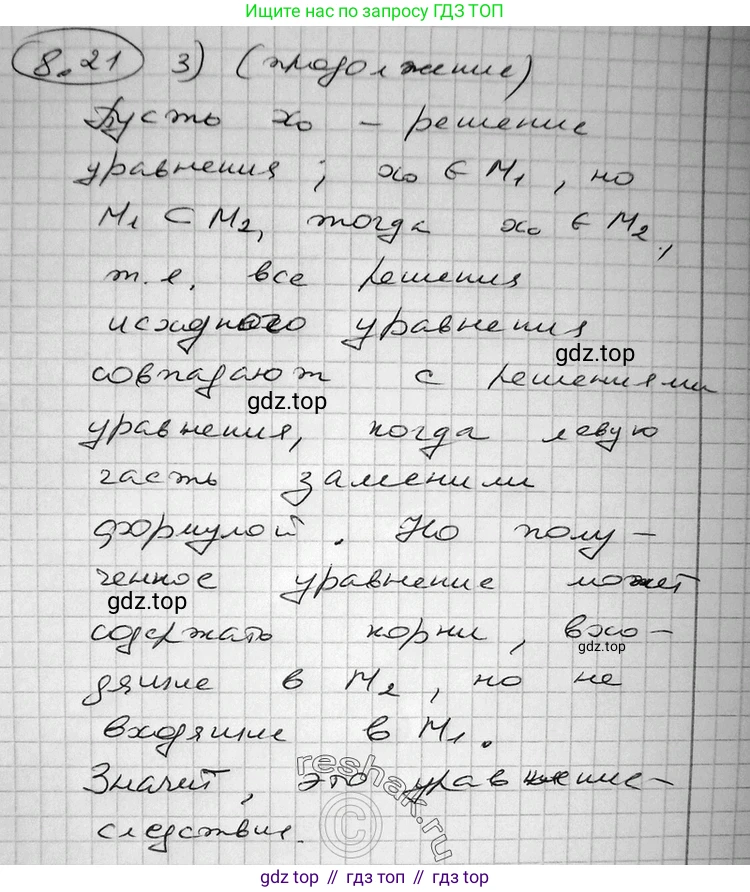 Ищите нас по запросу ГДЗ ТОП
8.21 3) (продолжение)
Пусть x₀ – решение
уравнения; x₀ ∈ M₁, но
M₁ ⊂ M₂, тогда x₀ ∈ M₂,
т.е. все решения
исходного уравнения
gdz.top
совпадают с решениями
gdz.top
уравнения, когда левую
часть заменим
формулой. Но полу–
ченное уравнение может
gdz.top
содержать корни, вхо–
gdz.top
дящие в M₂, но не
входящие в M₁.
Значит, это уравнение–
следствия.
reshak.ru
©
gdz.top // гдз.топ // gdz.top // гдз.топ